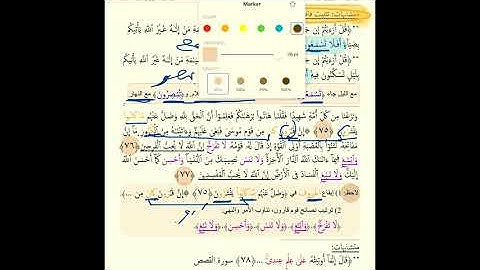 متشابهات: تثبيت
Marker
﴿قُلْ أَرَءَيْتُمْ إِن جَ
ـيَٰمَةِ مَنْ إِلَٰهٌ غَيْرُ ٱللَّهِ يَأْتِيكُم
بِضِيَآءٍ أَفَلَا تَسْمَعُو
﴿قُلْ أَرَءَيْتُمْ إِن جَ
ـيَٰمَةِ مَنْ إِلَٰهٌ غَيْرُ ٱللَّهِ يَأْتِيكُم
بِلَيْلٍ تَسْكُنُونَ فِيهِ
مع الليل جاء (تَسْمَعُو
و (تُبْصِرُونَ) مع النهار
وَنَزَعْنَا مِن كُلِّ أُمَّةٍ شَهِيدًا فَقُلْنَا هَاتُوا۟ بُرْهَٰنَكُمْ فَعَلِمُوٓا۟ أَنَّ ٱلْحَقَّ لِلَّهِ وَضَلَّ عَنْهُم مَّا كَانُوا۟
يَفْتَرُونَ (٧٥) ﴿إِنَّ قَٰرُونَ كَانَ مِن قَوْمِ مُوسَىٰ فَبَغَىٰ عَلَيْهِمْ وَءَاتَيْنَٰهُ مِنَ ٱلْكُنُوزِ مَآ إِنَّ
مَفَاتِحَهُۥ لَتَنُوٓأُ بِٱلْعُصْبَةِ أُو۟لِى ٱلْقُوَّةِ إِذْ قَالَ لَهُۥ قَوْمُهُۥ لَا تَفْرَحْ إِنَّ ٱللَّهَ لَا يُحِبُّ ٱلْفَرِحِينَ (٧٦)
وَٱبْتَغِ فِيمَآ ءَاتَىٰكَ ٱللَّهُ ٱلدَّارَ ٱلْءَاخِرَةَ وَلَا تَنسَ نَصِيبَكَ مِنَ ٱلدُّنْيَا وَأَحْسِن كَمَآ أَحْسَنَ ٱللَّهُ
إِلَيْكَ وَلَا تَبْغِ ٱلْفَسَادَ فِى ٱلْأَرْضِ إِنَّ ٱللَّهَ لَا يُحِبُّ ٱلْمُفْسِدِينَ (٧٧)
لاحظ: 1) إيقاع الحروف في ﴿وَضَلَّ عَنْهُم مَّا كَانُوا۟ يَفْتَرُونَ (٧٥) ﴿إِنَّ قَٰرُونَ كَانَ مِن ...﴾
2) ترتيب نصائح قوم قارون، تناوب الأمر والنهي:
﴿لَا تَفْرَحْ﴾ ﴿وَٱبْتَغِ﴾ ﴿وَلَا تَنسَ﴾ ﴿وَأَحْسِن﴾ ﴿وَلَا تَبْغِ﴾
متشابهات:
﴿قَالَ إِنَّمَآ أُوتِيتُهُۥ عَلَىٰ عِلْمٍ عِندِىٓ ... (٧٨)﴾ سورة القصص